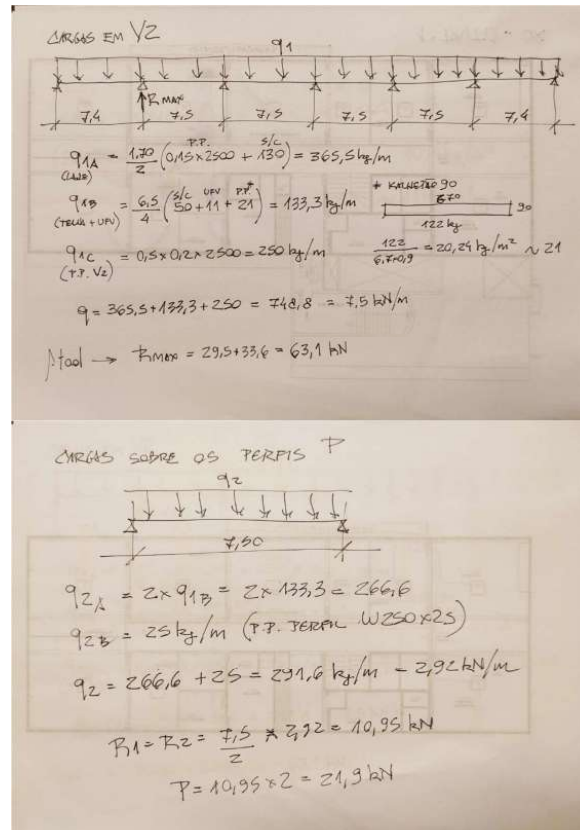 CARGAS EM V2
q1
RMAX
7,4 7,5 7,5 7,5 7,5 7,4
P.P. S/C
q1A = 1,70/2 (0,15x2500 + 130) = 365,5 kg/m
(LAJE)
S/C UFV P.P.*
q1B = 6,5/4 (50+11+21) = 133,3 kg/m
(TELHA + UFV)
* KALHETÃO 90
670
90
122 kg
122/6,7x0,9 = 20,24 kg/m² ~ 21
q1C = 0,5x0,2x2500 = 250 kg/m
(P.P. V2)
q = 365,5+133,3+250 = 748,8 = 7,5 kN/m
Ftool → RMAX = 29,5+33,6 = 63,1 kN
CARGAS SOBRE OS PERFIS P
q2
7,50
q2A = 2x q1B = 2x 133,3 = 266,6
q2B = 25 kg/m (P.P. PERFIL W250x25)
q2 = 266,6 + 25 = 291,6 kg/m - 2,92 kN/m
R1 = R2 = 7,5/2 x 2,92 = 10,95 kN
P = 10,95 x 2 = 21,9 kN